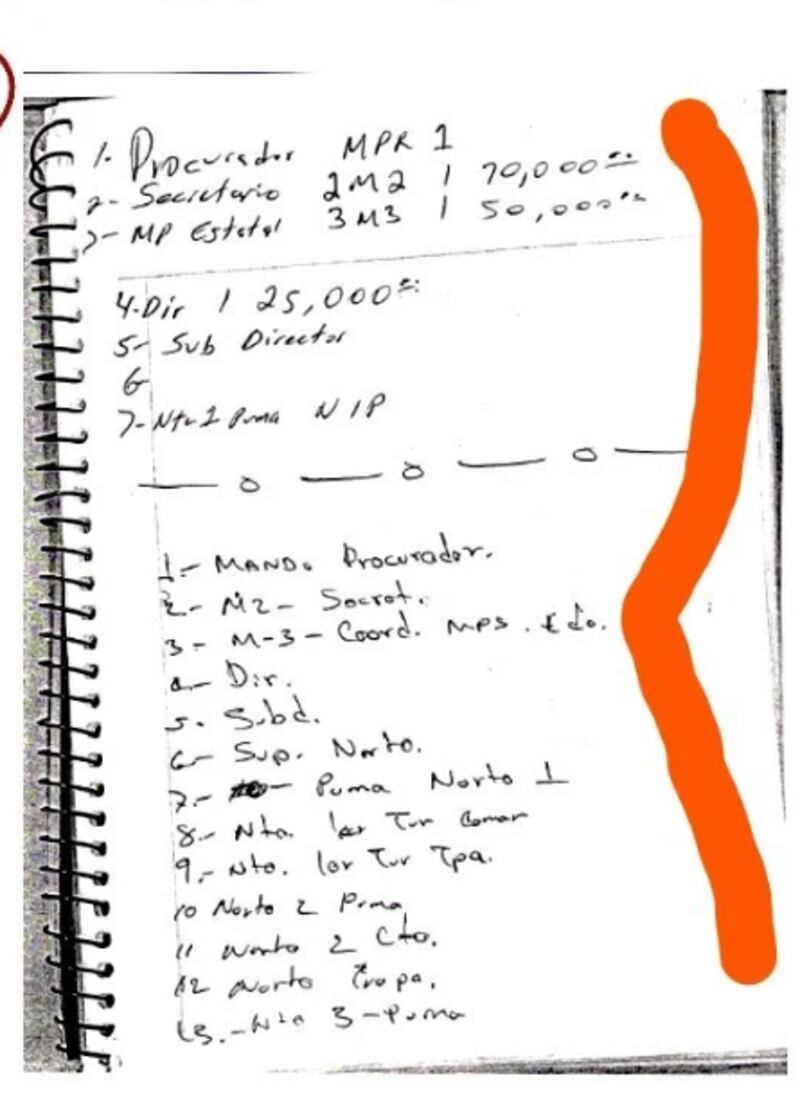 1- Procurador MPR 1
2- Secretario 2M2 1 70,000
3- MP Estatal 3M3 1 50,000
4-Dir 1 25,000
5- Sub Director
6
7- Nte 1 Puma N 1P
1.- MANDo Procurador.
2- M2- Secret.
3- M-3- Coord. MPS. Edo.
4- Dir.
5. Subd.
6- Sup. Norte.
7.- Puma Norte 1
8.- Nte. 1er Tur Coman
9.- Nte. 1er Tur Tpa.
10 Norte 2 Puma
11 Norte 2 Cto.
12 Norte Tropa.
13.- Nte 3-Puma